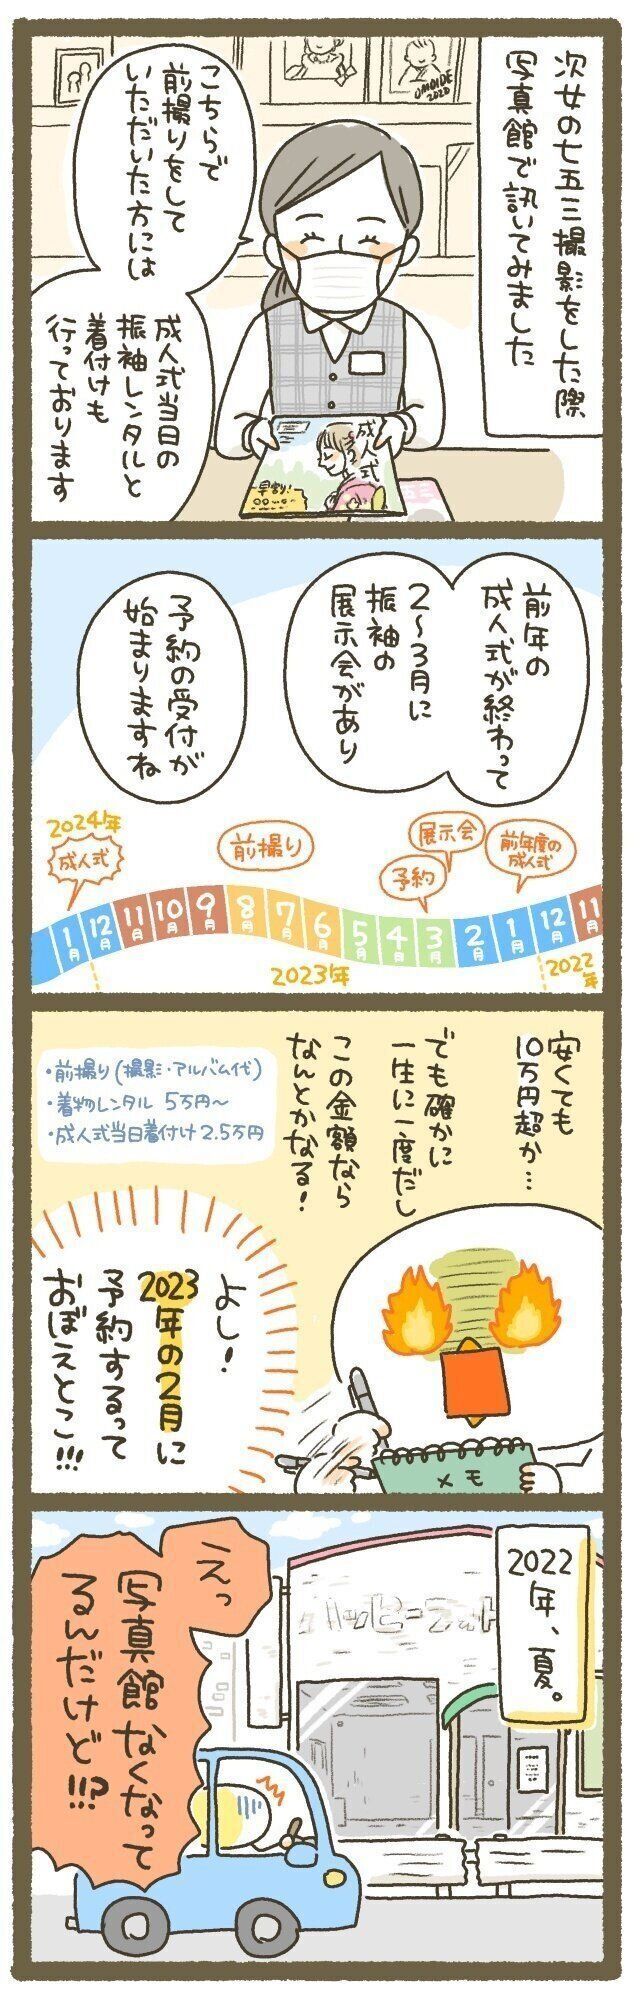 次女の七五三撮影をした際
写真館で訊いてみました
OMOIDE
2020
こちらで
前撮りをして
いただいた方には
成人式当日の
振袖レンタルと
着付けも
行っております
成人式
早割!
前年の
成人式が終わって
2〜3月に
振袖の
展示会があり
予約の受付が
始まりますね
2024年
成人式
前撮り
展示会
予約
前年度の
成人式
1月
12月
11月
10月
9月
8月
7月
6月
5月
4月
3月
2月
1月
12月
11月
2023年
2022年
安くても
10万円超か…
でも確かに
一生に一度だし
この金額なら
なんとかなる!
・前撮り(撮影・アルバム代)
・着物レンタル 5万円〜
・成人式当日着付け 2.5万円
よし!
2023年の2月に
予約するって
おぼえとこ!!!
メモ
2022年、夏。
えっ
写真館なくなって
るんだけど!!?